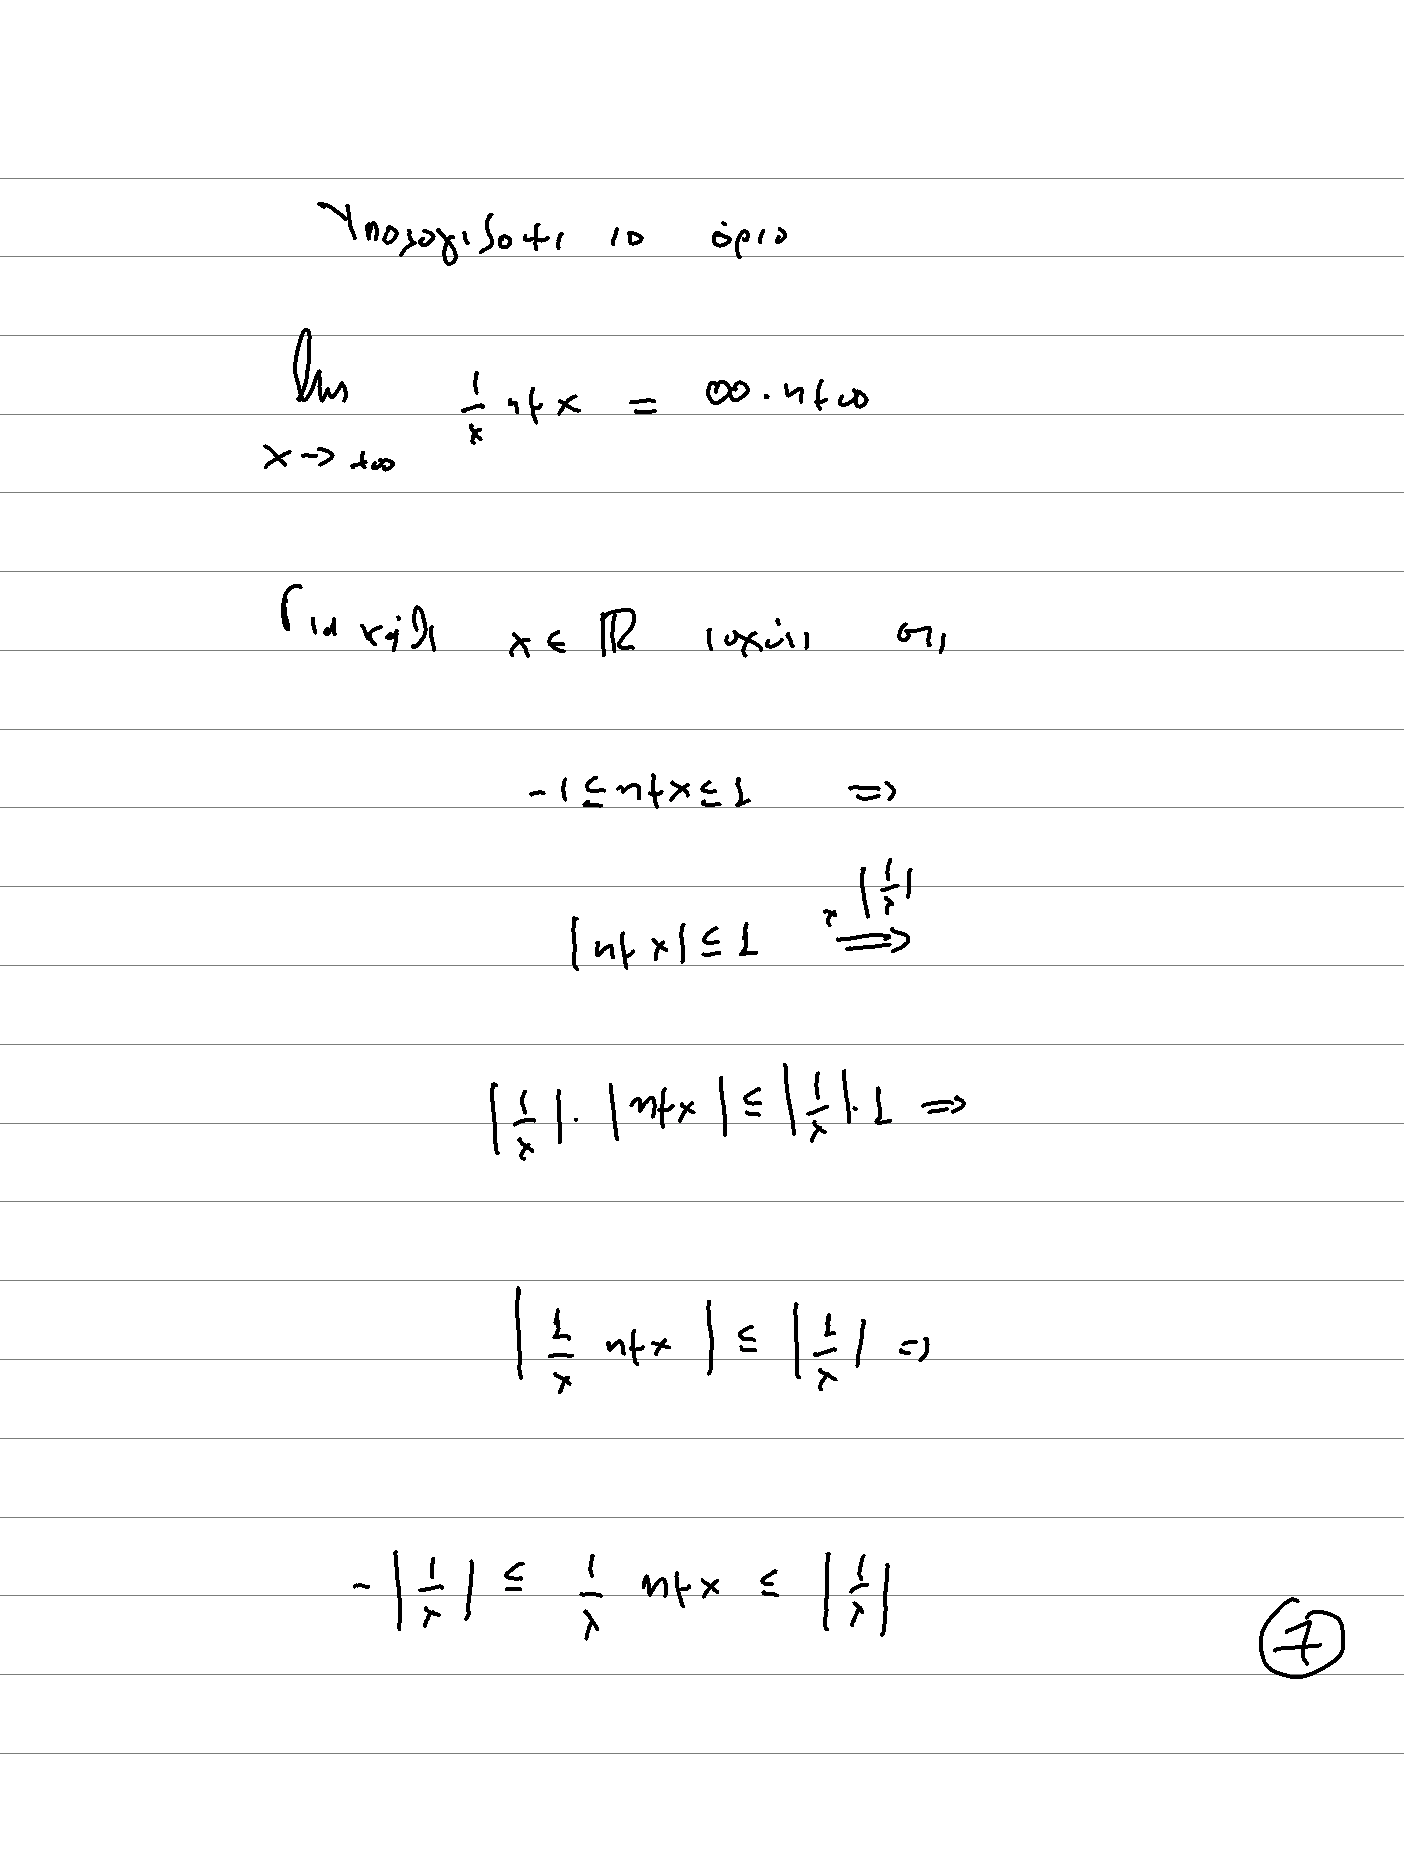 Υπολογίσατε το όριο
lim 1/x ημx = ∞ · ημ∞
x → +∞
Για κάθε x ∈ ℝ ισχύει ότι
-1 ≤ ημx ≤ 1 ⇒
|ημx| ≤ 1 x |1/x| ⇒
|1/x| · |ημx| ≤ |1/x| · 1 ⇒
|1/x ημx| ≤ |1/x| ⇒
-|1/x| ≤ 1/x ημx ≤ |1/x|
7